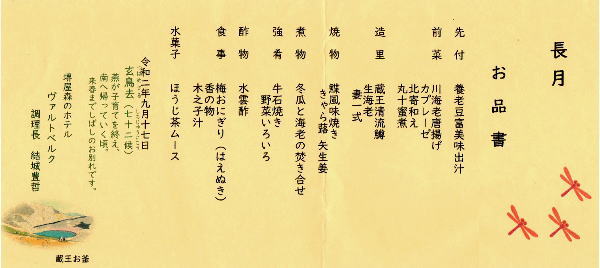 長月
お品書
先付 養老豆富美味出汁
前菜 川海老唐揚げ
カプレーゼ
北寄和え
丸十蜜煮
造里 蔵王清流鱒
生海老
妻一式
焼物 鰈風味焼き
きゃら蕗 矢生姜
煮物 冬瓜と海老の焚き合せ
強肴 牛石焼き
野菜いろいろ
酢物 水雲酢
食事 梅おにぎり（はえぬき）
香の物
木之子汁
水菓子 ほうじ茶ムース
令和二年九月十七日
玄鳥去（七十二候）
燕が子育てを終え、
南へ帰っていく頃。
来春までしばしのお別れです。
堺屋森のホテル
ヴァルトベルク
調理長 結城豊哲
蔵王お釜